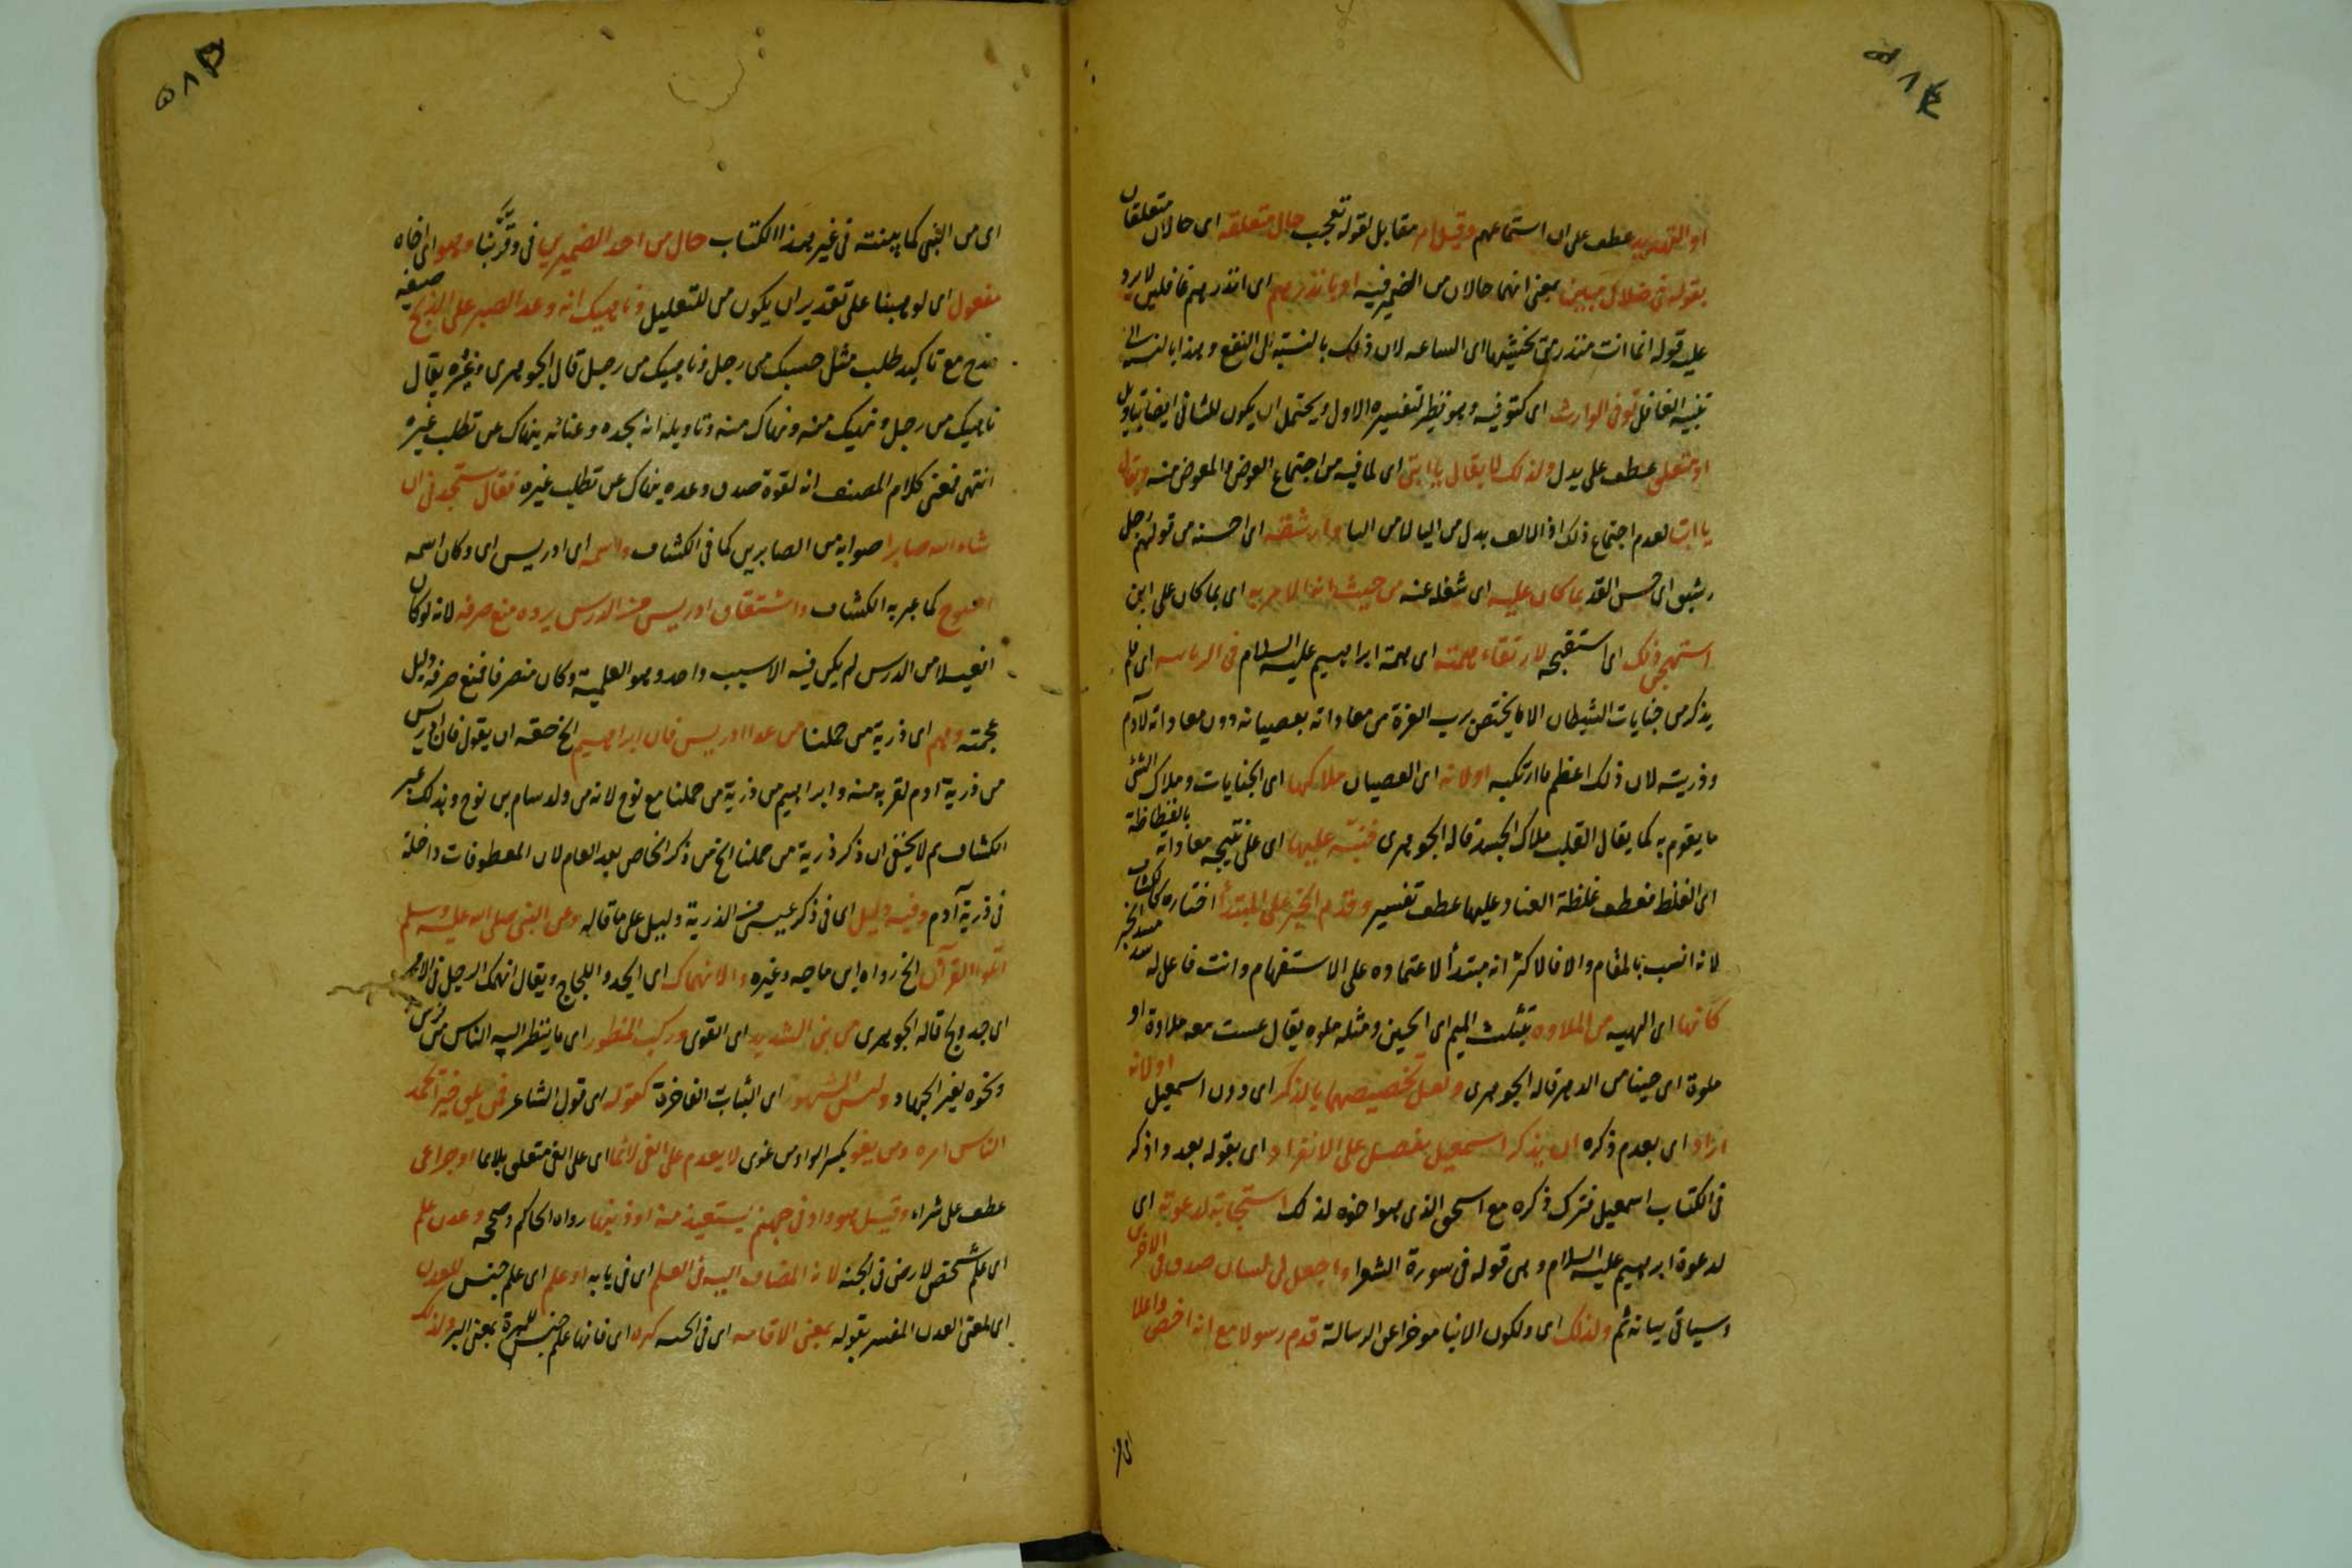 او التهديد عطف على ان استماعهم وقيل ام مقابل لقوله تعجب حال متعلقة اى حالان متعلقان
بقوله فى ضلال مبين بمعنى انهما حالان من الضمير فيه او بانذرهم اى انذرهم غافلين لا يرد
عليه قوله انما انت منذر من يخشيها اى الساعه لان ذلك بالنسبة الى النفع وهذا بالنسبة الى
تنبيه الغافل توفى الوارث اى كتوفيه وهو نظير لتفسيره الاول ويحتمل ان يكون للثانى ايضا بتاويل
او متعلق عطف على بدل ولذلك لا يقال يا ابتى اى لما فيه من اجتماع العوض والمعوض منه ويقال
يا ابتا لعدم اجتماع ذلك اذ الالف بدل من اليا لا من التا وارشقه اى احسنه من قولهم رجل
رشيق اى حسن القد بما كان عليه اى شغله عنه من حيث انه الاحر به اى بما كان على ابن
استهجن ذلك اى استقبحه لارتقاء همته اى همة ابراهيم عليه السلام فى الربانيه اى فلم
يذكر من جنايات الشيطان الا ما يختص برب العزة من معاداته بعصيانه دون معاداته لآدم
وذريته لان ذلك اعظم ما ارتكبه او لانه اى العصيان ملاكها اى الجنايات وملاك الشئ
ما يقوم به كما يقال القلب ملاك الجسد قاله الجوهرى فنبّه عليها اى على نتيجه معاداته بالفظاظة
اى الغلظ فعطف غلظة العناد عليها عطف تفسير وقدم الخبر على المبتدأ اختاره كالكشاف
لانه انسب بالمقام والا فالاكثر انه مبتدأ لاعتماده على الاستفهام وانت فاعل له سد مسد الخبر
كانها اى المهيه من الملاوه بتثليث الميم اى الحين ومثله ملوه يقال عست معه ملاوة او
ملوة اى حينا من الدهر قاله الجوهرى ولعل تخصيصهما بالذكر اى دون اسمعيل او لانه
اراد اى بعدم ذكره ان يذكر اسمعيل بفضل على الانفراد اى بقوله بعد واذكر
فى الكتاب اسمعيل فترك ذكره مع اسحق الذى هو اخوه لذلك استجابة لدعوته اى
لدعوة ابرهيم عليه السلام وهى قوله فى سورة الشعرا واجعل لى لسان صدق فى الاخرين
وسياتى بيانه ثم ولذلك اى ولكون الانبا موخرا عن الرسالة قدم رسولا مع انه اخص واعلا
اى من
اى من النبى كما بينته فى غير هذا الكتاب حال من احد الضميرين فى وقرّبنا وهو اى اخاه
مفعول اى لوهبنا على تقدير ان يكون من للتعليل وناهيك انه وعد الصبر على الذبح صيغة
مدح مع تاكيد طلب مثل حسبك من رجل وناهيك من رجل قال الجوهرى وغيره يقال
ناهيك من رجل ونهيك منه ونهاك منه وتاويله انه بجده وغنائه ينهاك عن تطلب غيره
انتهى فمعنى كلام المصنف انه لقوة صدق وعده ينهاك عن تطلب غيره فقال ستجدنى ان
شاء الله صابرا صوابه من الصابرين كما فى الكشاف واسمه اى ادريس اى وكان اسمه
اخنوخ كما عبر به الكشاف واشتقاق ادريس من الدرس يرده منع صرفه لانه لو كان
افعيلا من الدرس لم يكن فيه الا سبب واحد وهو العلمية وكان منصرفا فمنع صرفه دليل
عجمته وهم اى ذرية من حملنا من عدا ادريس فان ابراهيم الخ حقه ان يقول فان ادريس
من ذرية آدم لقربه منه وابراهيم من ذرية من حملنا مع نوح لانه من ولد سام بن نوح وبذلك عبر
الكشاف ثم لا يخفى ان ذكر ذرية من حملنا الخ من ذكر الخاص بعد العام لان المعطوفات داخلة
فى ذرية آدم وفيه دليل اى فى ذكر عيسى من الذرية دليل على ما قاله وعن النبى صلى الله عليه وسلم
اتلوا القرآن الخ رواه ابن ماجه وغيره والانهماك اى الجد واللجاج ويقال انهمك الرجل فى الامر
اى جد ولج قاله الجوهرى من بنى الشديد اى القوى وركب المنظور اى ما ينظر اليه الناس من فرس
ونحوه بغير الجهاد ولبس المشهور اى الثياب الفاخرة كقوله اى قول الشاعر فمن يلق خيرا تحمد
الناس امره ومن يغو بكسر الواو من غوى لا يعدم على الغى لائما اى على الغى متعلق بلائما او جزا غى
عطف على شراء وقيل هو واد فى جهنم يستعيذ منه اوديتها رواه الحاكم وصححه وعدن علم
اى علم شخص لارض فى الجنه لانه المضاف اليه فى العلم اى فى بابه او علم اى علم جنس للعدن
اى لمعنى العدن المفسر بقوله بمعنى الاقامه اى فى الجنه كبره اى فانها علم جنس للمبرة بمعنى البر ولذلك